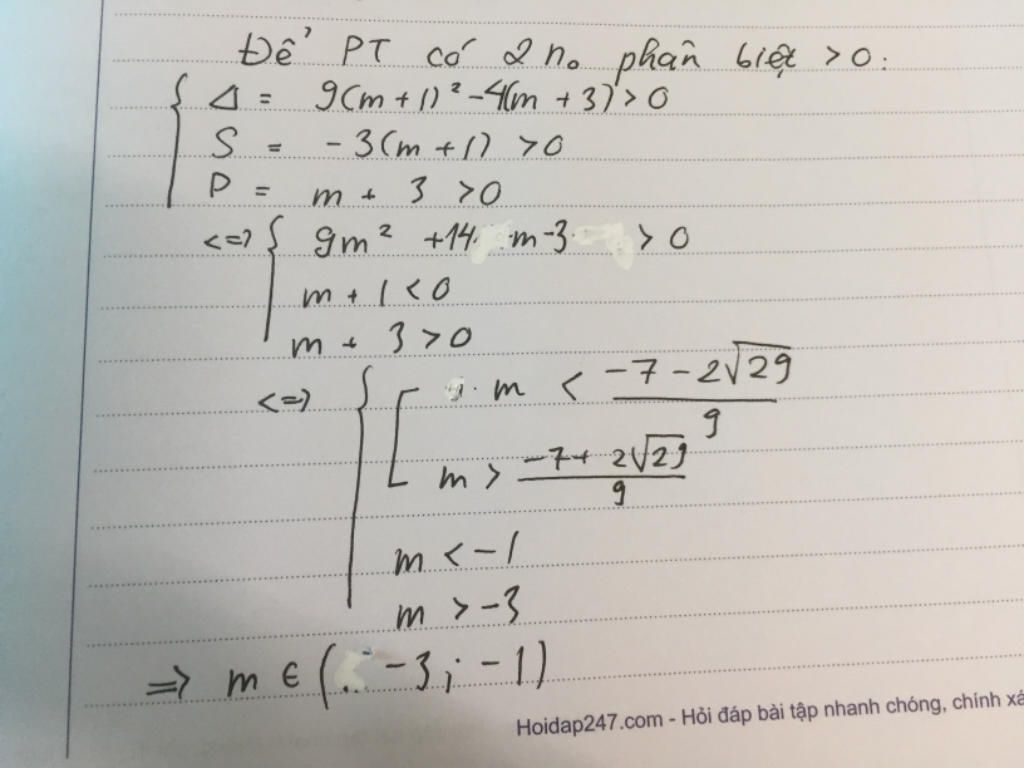 Để PT có 2 n₀ phân biệt > 0:
{ Δ = 9(m + 1)² - 4(m + 3) > 0
S = - 3(m + 1) > 0
P = m + 3 > 0
<=> { 9m² + 14 m - 3 > 0
m + 1 < 0
m + 3 > 0
<=> { [ m < (-7 - 2√29)/9
m > (-7 + 2√29)/9
m < -1
m > -3
=> m ∈ ( -3 ; -1)
Hoidap247.com - Hỏi đáp bài tập nhanh chóng, chính xá